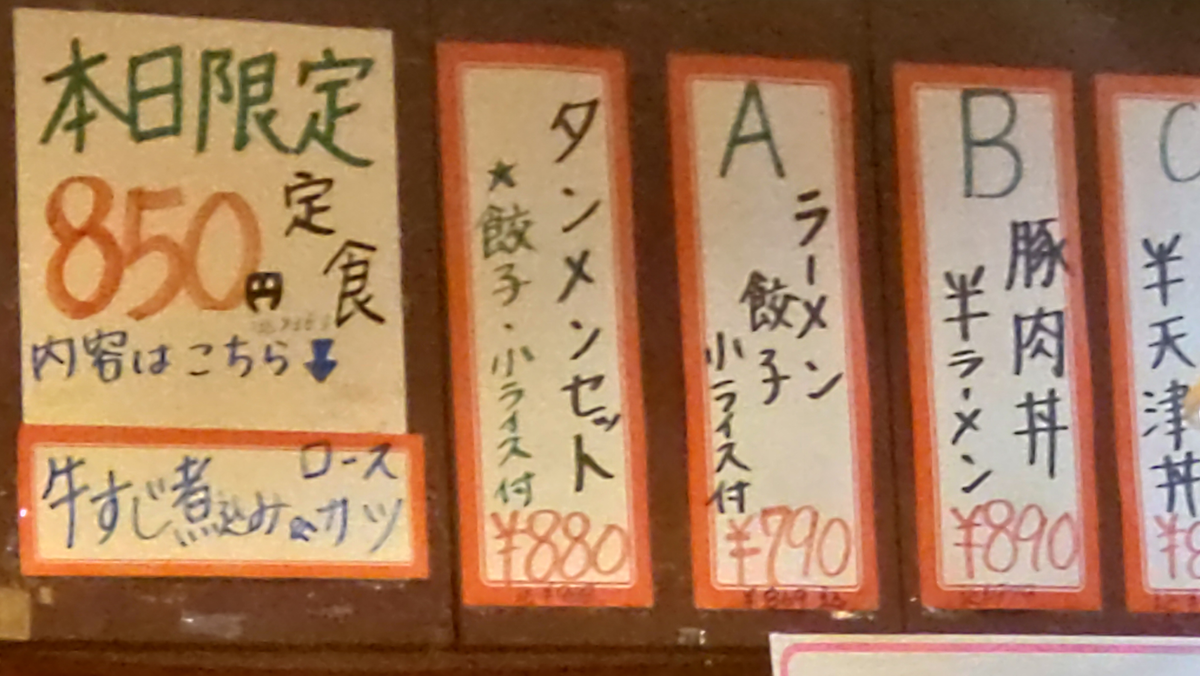 本日限定
850円
定食
内容はこちら⬇
牛すじ煮込み&ロースカツ
タンメンセット
★餃子・小ライス付
¥880
A
ラーメン
餃子
小ライス付
¥790
B
豚肉丼
半ラーメン
¥890
C
半天津丼